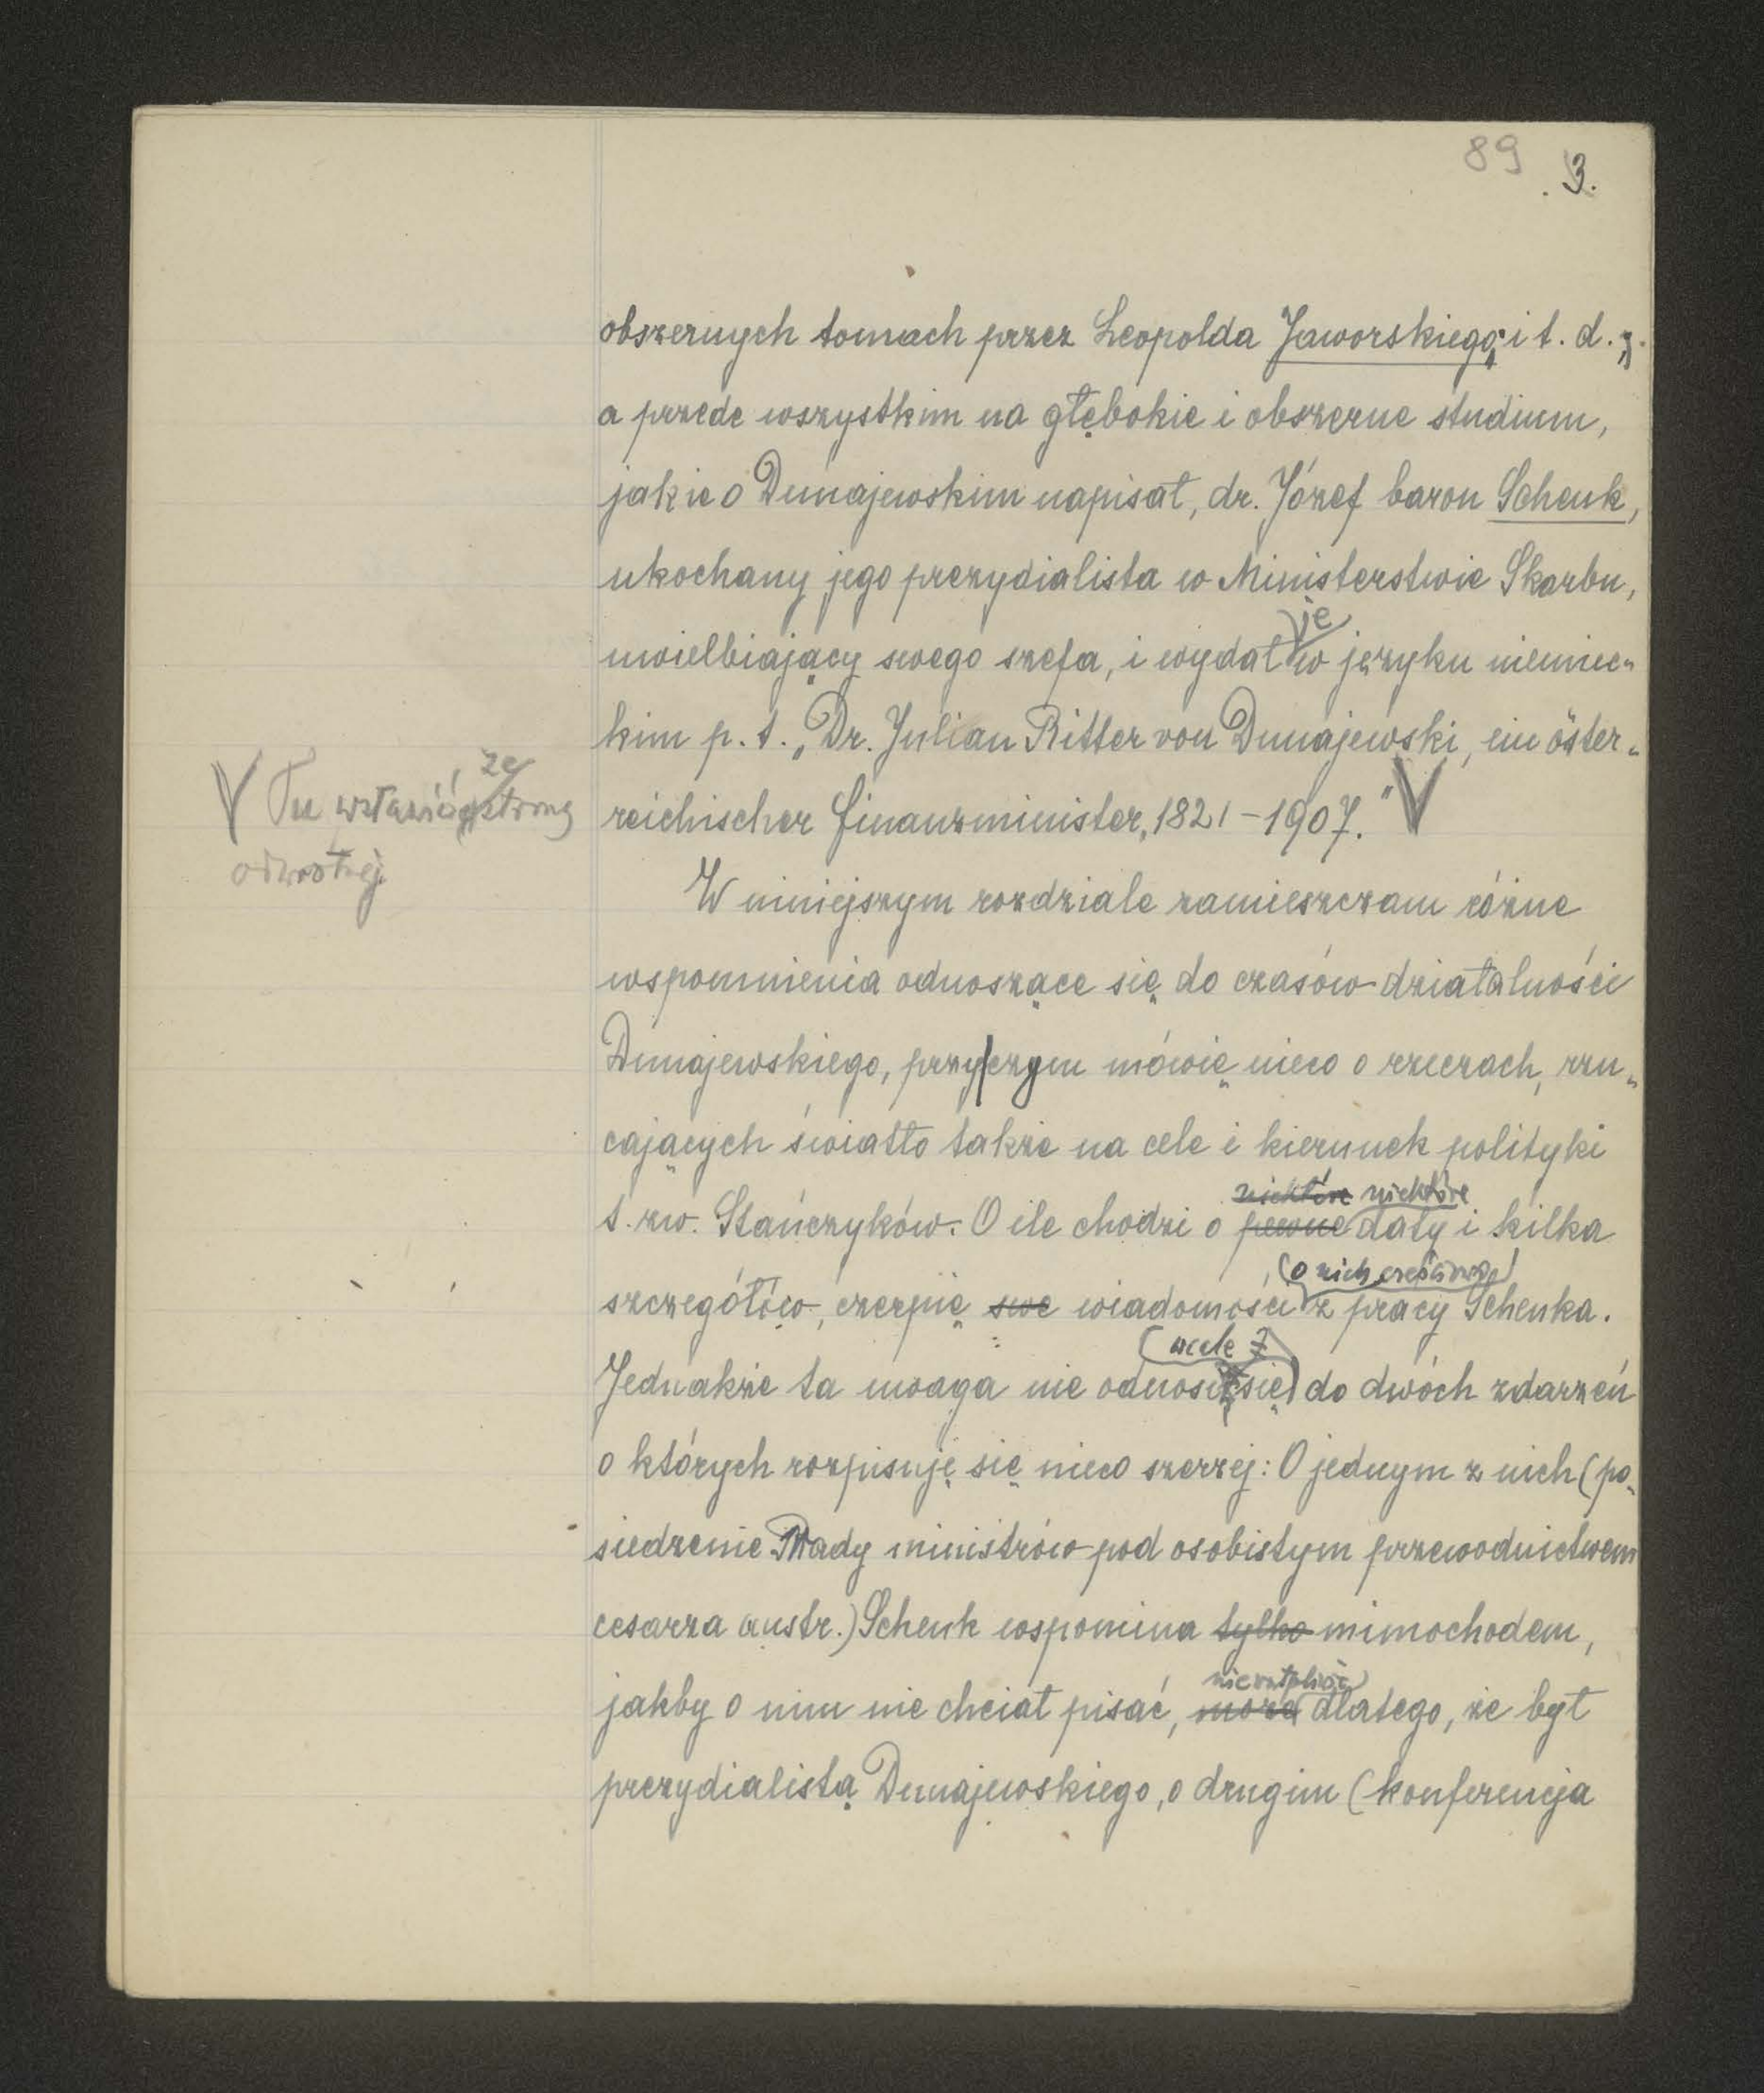 89
3.
obszernych tomach przez Leopolda Jaworskiego, i t. d.,
a przede wszystkim na głębokie i obszerne studium,
jakie o Dunajewskim napisał, dr. Józef baron Schenk,
ukochany jego prezydialista w Ministerstwie Skarbu,
je
uwielbiający swego szefa, i wydał w języku niemiec-
kim p. t. „Dr. Julian Ritter von Dunajewski, ein öster-
reichischer Finanzminister, 1821-1907."
ze
V Tu wstawić stroną
odwrotnej
W niniejszym rozdziale zamieszczam różne
wspomnienia odnoszące się do czasów działalności
Dunajewskiego, przy|czym mówię nieco o rzeczach, rzu-
cających światło także na cele i kierunek polityki
niektóre niektóre
t. zw. Stańczyków. O ile chodzi o pewne daty i kilka
(o nich częściowo)
szczegółów, czerpię swe wiadomości z pracy Schenka.
(wcale
Jednakże ta uwaga nie odnosi się) do dwóch zdarzeń
o których rozpisuję się nieco szerzej: O jednym z nich (po-
siedzenie Rady ministrów pod osobistym przewodnictwem
cesarza austr.) Schenk wspomina tylko mimochodem,
niewątpliwie
jakby o nim nie chciał pisać, może dlatego, że był
prezydialistą Dunajewskiego, o drugim (konferencja